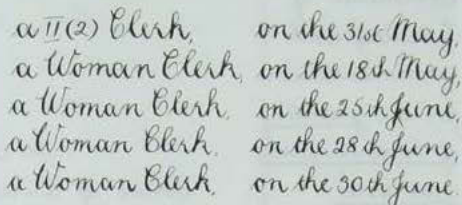 a II(2) Clerk, on the 31st May,
a Woman Clerk, on the 18th May,
a Woman Clerk, on the 25th June,
a Woman Clerk, on the 28th June,
a Woman Clerk, on the 30th June.